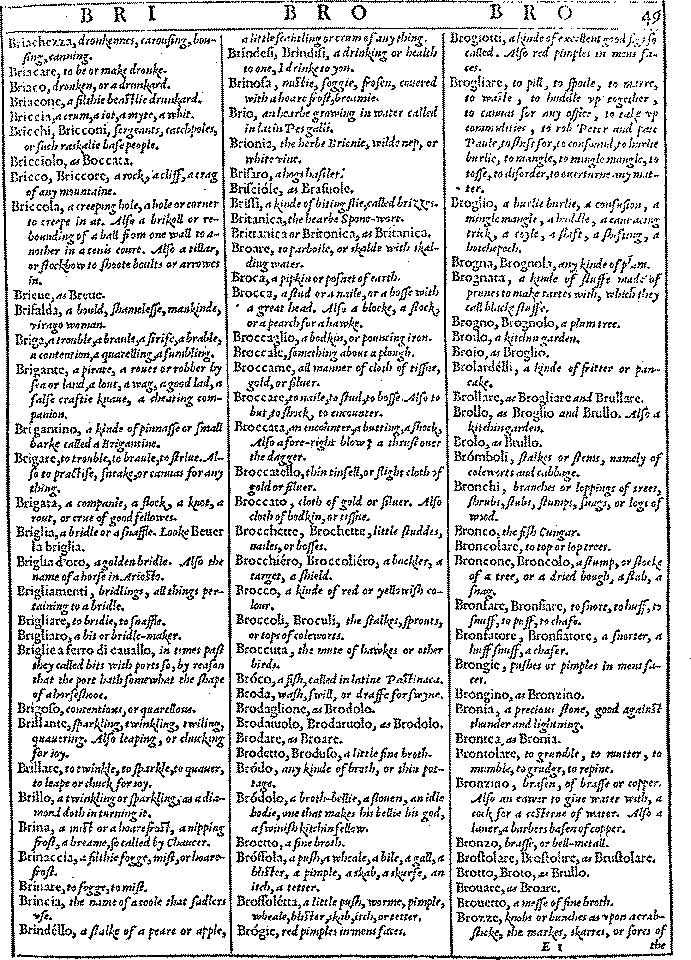 B R I B R O B R O 49
Briachezza, dronkennes, carousing, bousing, canning.
Briacare, to be or make dronke.
Briaco, dronken, or a drunkard.
Briacone, a filthie beastlie drunkard.
Briccia, a crum, a iot, a myte, a whit.
Bricchi, Bricconi, sergeants, catchpoles,
or such raskalie base people.
Bricciolo, as Boccata.
Bricco, Briccore, a rock, a cliff, a crag
of any mountaine.
Briccola, a creeping hole, a hole or corner
to creepe in at. Also a brikoll or re-
bounding of a ball from one wall to a-
nother in a tenis court. Also a tillar,
or stockbow to shoote boults or arrowes
in.
Brieue, as Breue.
Brifalda, a bould, shamelesse, mankinde,
virago woman.
Briga, a trouble, a braule, a strife, a brable,
a contention, a quarelling, a fumbling.
Brigante, a pirate, a rouer or robber by
sea or land, a lout, a wag, a good lad, a
false craftie knaue, a cheating com-
panion.
Brigantino, a kinde of pinnasse or small
barke called a Brigantine.
Brigare, to trouble, to braule, to striue. Al-
so to practise, sneake, or canuas for any
thing.
Brigata, a companie, a flock, a knot, a
rout, or crue of good fellowes.
Briglia, a bridle or a snaffle. Looke Beuer
la briglia.
Briglia d'oro, a golden bridle. Also the
name of a horse in Ariosto.
Brigliamenti, bridlings, all things per-
taining to a bridle.
Brigliare, to bridle, to snaffle.
Brigliaro, a bit or bridle-maker.
Briglie a ferro di cauallo, in times past
they called bits with ports so, by reason
that the port hath somewhat the shape
of a horseshooe.
Brigoso, contentious, or quarellous.
Brillante, sparkling, twinkling, twiling,
quauering. Also leaping, or chucking
for ioy.
Brillare, to twinkle, to sparkle, to quauer,
to leape or chuck for ioy.
Brillo, a twinkling or sparkling, as a dia-
mond doth in turning it.
Brina, a mist or a hoarefrost, a nipping
frost, a breame, so called by Chaucer.
Brinaccia, a filthie fogge, mist, or hoare-
frost.
Brinare, to fogge, to mist.
Brincia, the name of a toole that sadlers
vse.
Brindéllo, a stalke of a peare or apple,
a little scantling or crum of any thing.
Brindesi, Brindisi, a drinking or health
to one, I drinke to you.
Brinosa, mistie, foggie, frosen, couered
with a hoare frost, breamie.
Brio, an hearbe growing in water called
in latin Pes galli.
Brionia, the herbe Brionie, wilde nep, or
white vine.
Brisaro, a hogs haslet.
Briscióle, as Brasuole.
Brissi, a kinde of biting flie, called brizzes.
Britanica, the hearbe Spoone-wort.
Brittanica or Britonica, as Britanica.
Broare, to parboile, or skalde with skal-
ding water.
Broca, a pipkin or posnet of earth.
Brocca, a stud or a naile, or a bosse with
a great head. Also a blocke, a stock,
or a pearch for a hawke.
Broccaglio, a bodkin, or pouncing iron.
Broccale, something about a plough.
Broccame, all manner of cloth of tissue,
gold, or siluer.
Broccare, to naile, to stud, to bosse. Also to
but, to shock, to encounter.
Broccata, an encounter, a butting, a shock,
Also a fore-right blow, a thrust ouer
the dagger.
Broccatello, thin tinsell, or slight cloth of
gold or siluer.
Broccato, cloth of gold or siluer. Also
cloth of bodkin, or tissue.
Brocchette, Brochette, little studdes,
nailes, or bosses.
Brocchiéro, Broccoliéro, a buckler, a
target, a shield.
Brocco, a kinde of red or yellowish co-
lour.
Broccoli, Broculi, the stalkes, sprouts,
or tops of coleworts.
Broccuta, the mute of hawkes or other
birds.
Bróco, a fish, called in latine Pastinaca.
Broda, wash, swill, or draffe for swyne.
Brodaglione, as Brodolo.
Brodaiuolo, Brodaruolo, as Brodolo.
Brodare, as Broare.
Brodetto, Broduso, a little fine broth.
Bródo, any kinde of broth, or thin pot-
tage.
Bródolo, a broth-bellie, a slouen, an idle
bodie, one that makes his bellie his god,
a swinish kitchin fellow.
Broetto, a fine broth.
Bróffola, a push, a wheale, a bile, a gall, a
blister, a pimple, a skab, a skurfe, an
itch, a tetter.
Broffolétta, a little push, worme, pimple,
wheale, blister, skab, itch, or tetter.
Brógie, red pimples in mens faces.
Brogiotti, a kinde of excellent good figs so
called. Also red pimples in mens fa-
ces.
Brogliare, to pill, to spoile, to marre,
to waste, to huddle vp together,
to canuas for any office, to take vp
commodities, to rob Peter and pay
Paule, to shift for, to confound, to hurlie
burlie, to mangle, to mingle mangle, to
tosse, to disorder, to ouerturne any mat-
ter.
Broglio, a hurlie burlie, a confusion, a
mingle mangle, a huddle, a canuacing
trick, a coyle, a shift, a shifting, a
hotchepoch.
Brogna, Brognola, any kinde of plum.
Brognata, a kinde of stuffe made of
prunes to make tartes with, which they
call black stuffe.
Brogno, Brognolo, a plum tree.
Broilo, a kitchin garden.
Broio, as Broglio.
Brolardélli, a kinde of fritter or pan-
cake.
Brollare, as Brogliare and Brullare.
Brollo, as Broglio and Brullo. Also a
kitchin garden.
Brolo, as Brullo.
Brómboli, stalkes or stems, namely of
coleworts and cabbage.
Bronchi, branches or loppings of trees,
shrubs, stubs, stumps, snags, or logs of
wood.
Bronco, the fish Cungar.
Broncolare, to top or lop trees.
Broncone, Broncolo, a stump, or stocke
of a tree, or a dried bough, a stab, a
snag.
Bronfare, Bronfiare, to snore, to huff, to
snuff, to puff, to chafe.
Bronfatore, Bronfiatore, a snorter, a
huff snuff, a chafer.
Brongie, pushes or pimples in mens fa-
ces.
Brongino, as Bronzino.
Bronia, a precious stone, good against
thunder and lightning.
Brontea, as Bronia.
Brontolare, to grumble, to mutter, to
mumble, to grudge, to repine.
Bronzino, brasen, of brasse or copper.
Also an eawer to giue water with, a
cock for a cesterne of water. Also a
lauer, a barbers bason of copper.
Bronzo, brasse, or bell-metall.
Brostolare, Brostoire, as Brustolare.
Brotto, Broto, as Brullo.
Brouare, as Broare.
Brouetto, a messe of fine broth.
Brozze, knobs or bunches as vpon a crab-
sticke, the markes, skarres, or sores of
E 1 the